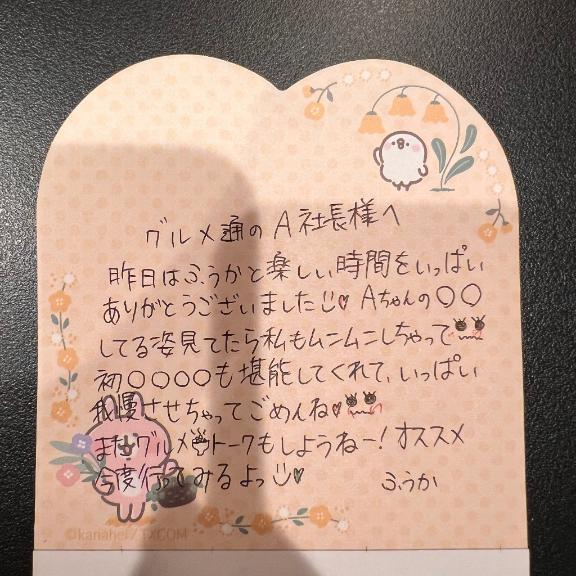 グルメ通のA社長様へ
昨日はふうかと楽しい時間をいっぱい
ありがとうございました♥ Aちゃんの〇〇
してる姿見てたら私もムンムンしちゃって
初〇〇〇〇も堪能してくれて、いっぱい
我慢させちゃってごめんね♥
またグルメトークもしようねー！オススメ
今度行ってみるよっ♥ ふうか
©kanahei / TXCOM